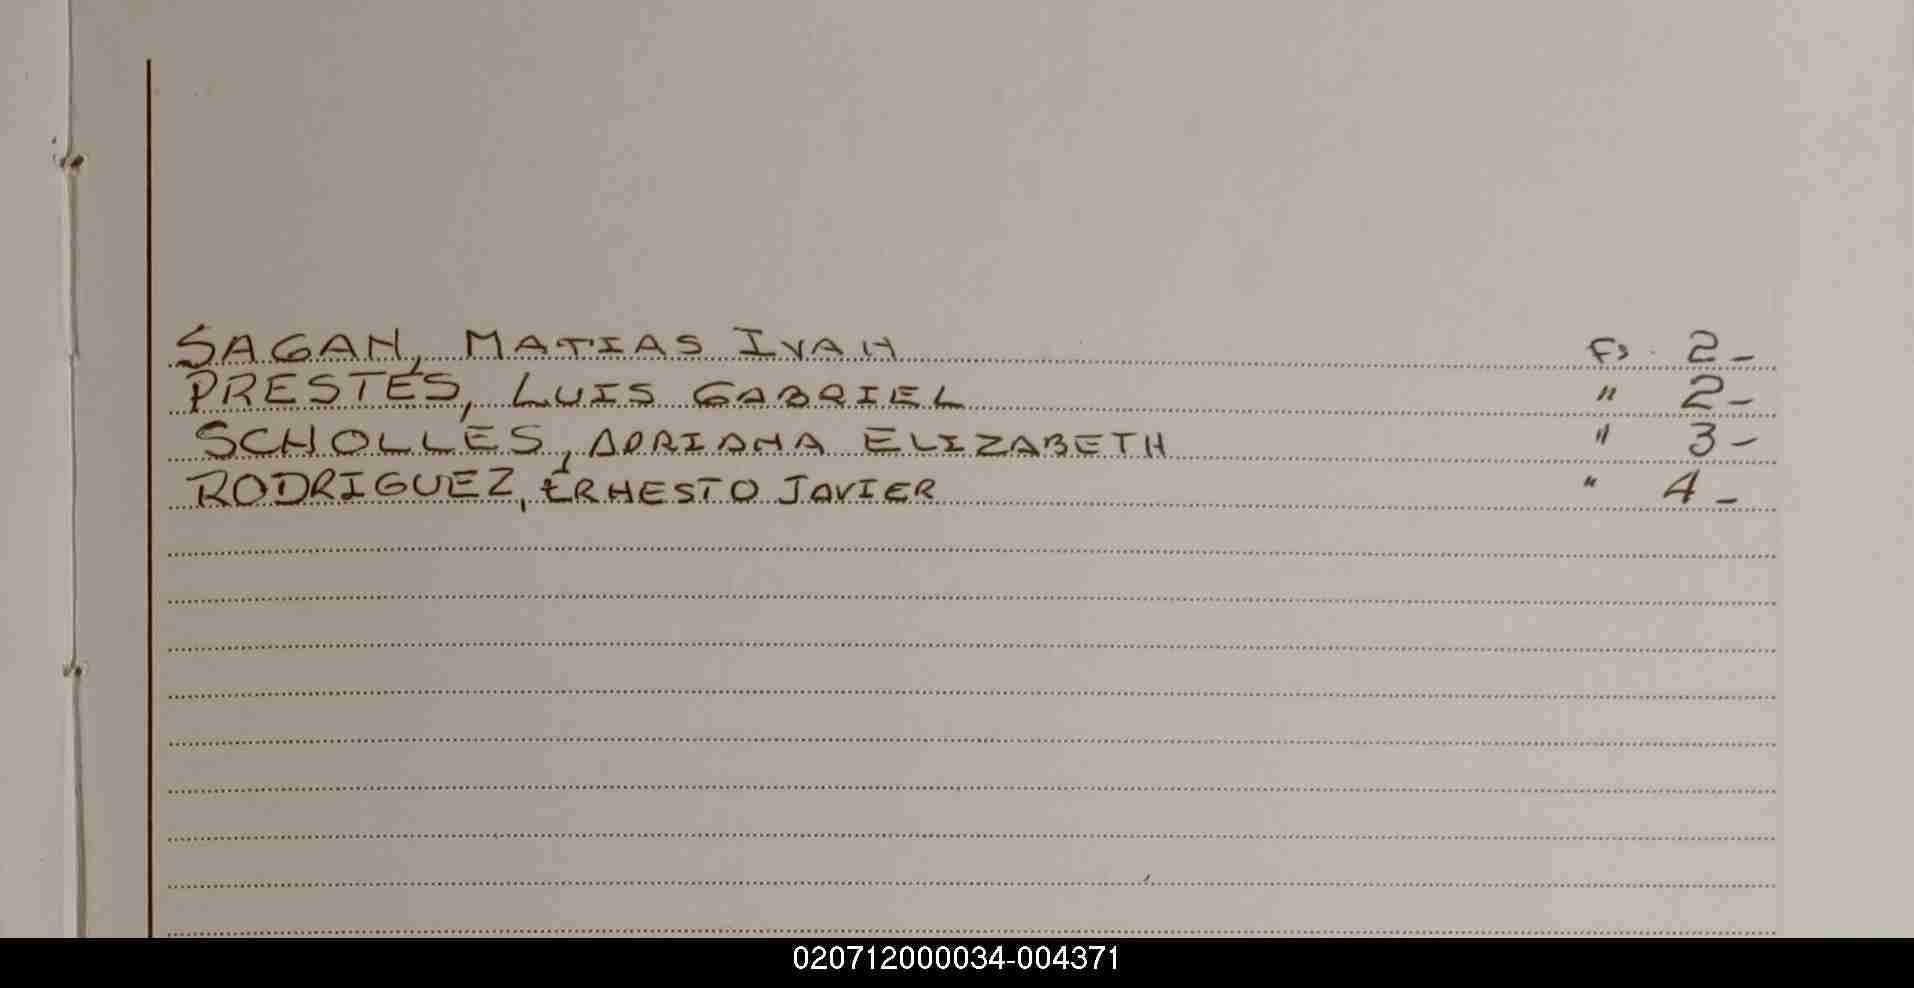 SAGAN, MATIAS IVAN Fs. 2-
PRESTES, LUIS GABRIEL " 2-
SCHOLLES, ADRIANA ELIZABETH " 3-
RODRIGUEZ, ERNESTO JAVIER " 4-
020712000034-004371